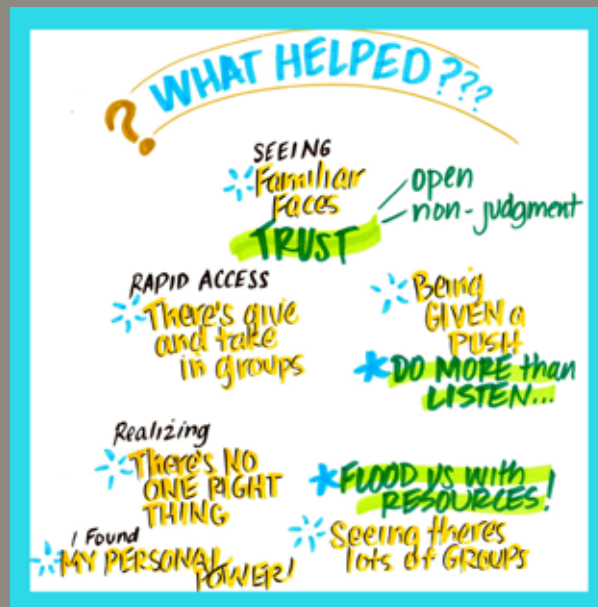 ? WHAT HELPED ???
SEEING
Familiar
Faces
TRUST
open
non-judgment
RAPID ACCESS
There's give
and take
in groups
Being
GIVEN a
PUSH
DO MORE than
LISTEN...
Realizing
There's NO
ONE RIGHT
THING
FLOOD us with
RESOURCES!
I Found
MY PERSONAL
POWER!
Seeing theres
lots of GROUPS